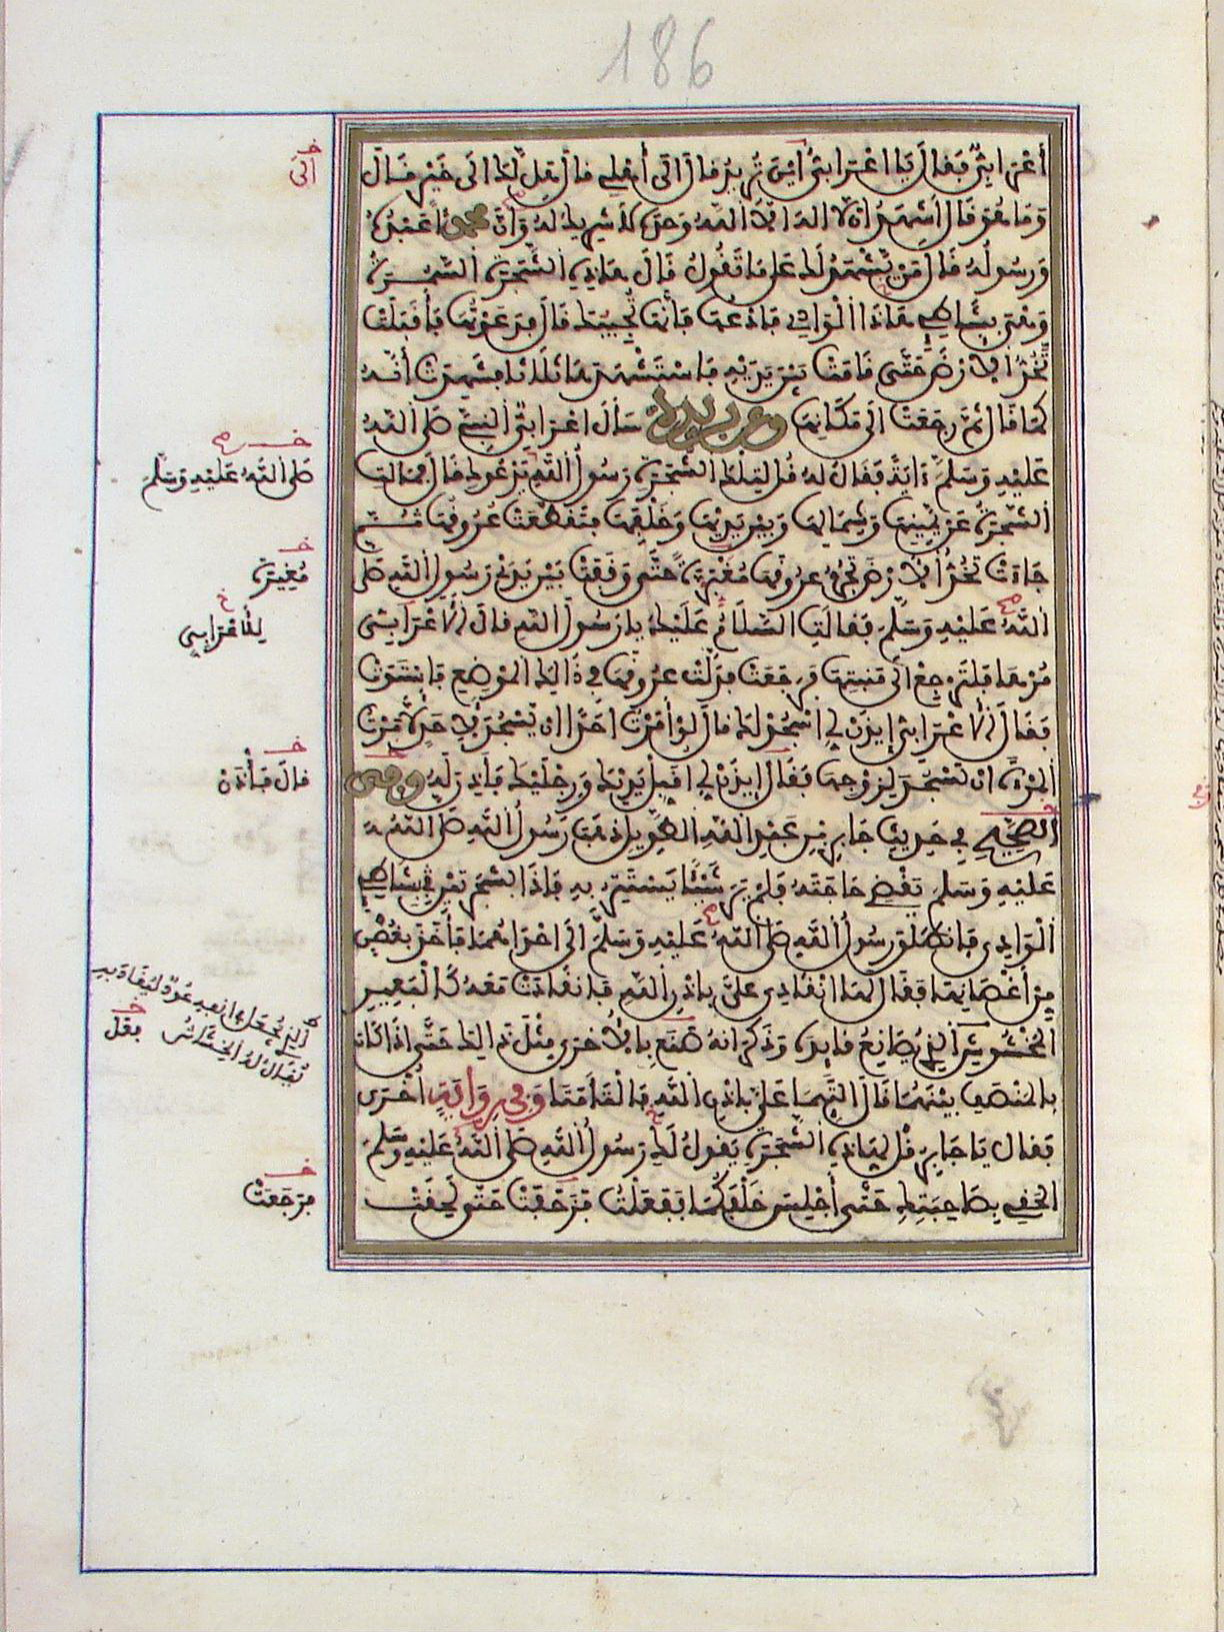 186
أَعْرَابِيٌّ فَقَالَ يَا اعْرَابِيُّ أَيْنَ تُرِيدُ قالَ الَى أَهْلِي قالَ هَلْ لَكَ الَى خَيْرٍ قَالَ
وَمَا هُوَ قَالَ أَشْهَدُ ان لا اله الّا اللهُ وَحْدَهُ لا شَرِيكَ لهُ وَأَنَّ محمدًا عَبْدُهُ
وَرسُولُهُ قَالَ مَن يَّشْهَدُ لَكَ عَلَى مَا تَقُولُ قَالَ هَاذِهِ الشَّجَرَةُ السَّمُرَةُ
وَهْيَ بِشَاطِئِ هَاذَا الْوَادِي فَادْعُهَا فَإِنَّهَا تُجِيبُكَ قَالَ فَدَعَوْتُهَا فَأَقْبَلَتْ
تَخُدُّ الارْضَ حَتَّى قَامَتْ بَيْنَ يَدَيْهِ فَاسْتَشْهَدَهَا ثَلَاثًا فَشَهِدَتْ أَنَّهُ
كَمَا قَالَ ثمَّ رَجَعَتْ الَى مَكَانِهَا وعن بريدة سَأَلَ اعْرَابِيٌّ النبيَّ صَلى اللهُ
عَلَيْهِ وَسَلمَ ءَايَةً فَقَالَ لهُ قُل لِتِلْكَ الشَّجَرَةِ رَسُولُ اللهِ يَدْعُوكِ قَالَ فَمَالَتِ
الشَّجَرَةُ عَن يَّمِينِهَا وَشِمَالِهَا وَبَيْنَ يَدَيْهَا وَخَلْفِهَا فَتَقَطَّعَتْ عُرُوقُهَا ثُمَّ
جَاءَتْ تَخُدُّ الارْضَ تَجُرُّ عُرُوقَهَا مُغْبَرَّةً حتَّى وَقَفَتْ بَيْنَ يَدَيْ رَسُولِ اللهِ صَلى
اللهُ عَلَيْهِ وَسَلمَ فَقَالَتِ السَّلَامُ عَلَيْكَ يا رَسُولَ اللهِ قالَ الأعْرَابِيُّ
مُرْهَا فَلْتَرْجِعْ الَى مَنبِتِهَا فَرَجَعَتْ فَدَلَّتْ عُرُوقَهَا فِي ذَالِكَ الموْضِعِ فَاسْتَوَتْ
فَقَالَ الأعْرَابِيُّ إيذَنْ لِي اسْجُدْ لَكَ قالَ لوْ أمَرْتُ احَدًا ان يَّسْجُدَ لِأحَدٍ لأمَرْتُ
المرْأَةَ ان تَسْجُدَ لِزَوْجِهَا فَقَالَ إيذَنْ لِي اقَبِّلْ يَدَيْكَ وَرِجْلَيْكَ فَأَذِنَ لَهُ وفي
الصَّحِيحِ فِي حَدِيثِ جَابِرِ بنِ عَبْدِ اللهِ الطَّوِيلِ ذهَبَ رَسُولُ اللهِ صَلى اللهُ
عَلَيْهِ وَسَلمَ يَقْضِي حَاجَتَهُ فَلمْ يَرَ شَيْئًا يَسْتَتِرُ بِهِ فَإِذَا بشَجَرَتَيْنِ فِي شَاطِئِ
الْوَادِي فَانطَلَقَ رسُولُ اللهِ صَلى اللهُ عَلَيْهِ وَسَلمَ الَى احْدَاهُمَا فَأخَذَ بِغُصْنٍ
مِنْ أغْصَانِهَا فقَالَ لهَا انْقَادِي عَليَّ بإذْنِ اللهِ فَانقَادَتْ مَعَهُ كَالْبَعِيرِ
المخْشُوشِ الذِي يُصَانِعُ قَائِدَهُ وَذَكَرَ انهُ صَنَعَ بِالأُخْرَى مِثْلَ ذَالِكَ حَتَّى اذَا كَانَ
بِالمنْصَفِ بَيْنَهُمَا قَالَ التَئِمَا عَليَّ بإذْنِ اللهِ فَالْتَأَمَتَا وَفِي رِوَايَةٍ اُخْرَى
فَقَال يَا جَابِرُ قُلْ لِهَاذِهِ الشَّجَرَةِ يَقُولُ لَكِ رَسُولُ اللهِ صَلى اللهُ عَلَيْهِ وَسَلمَ
الحَقِي بِصَاحِبَتِكِ حَتَّى أجْلِسَ خَلْفَكُمَا فَفَعَلْتُ فَزَحَفَتْ حَتَّى لَحِقَتْ
خ
الَى
خ
صَلى اللهُ عَلَيْهِ وَسَلَّمَ
خ
مُغِيرَةً
خ
لِلْأَعْرَابِي
خ
قالَ فَأْذَنْ
الذِي يُجعَلُ فِي انفهِ عُودٌ ليُقَادَ بهِ
يُقَالُ لَهُ الخِشَاشُ
خ
فقَل
خ
فَرَجَعَتْ